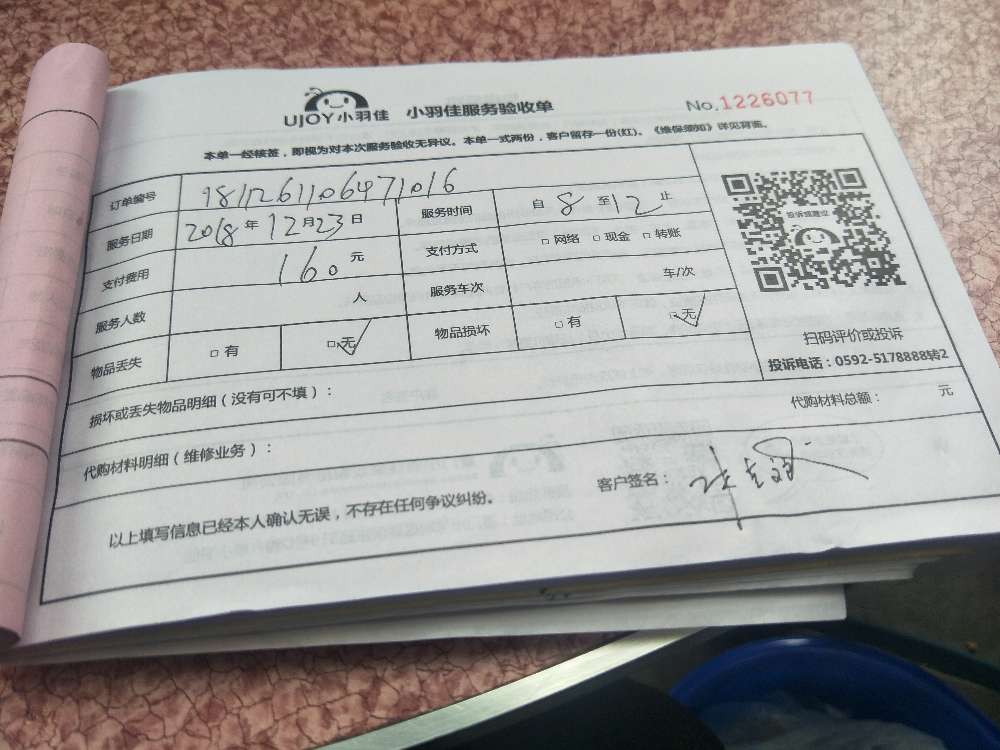 UJOY小羽佳 小羽佳服务验收单 No.1226077
本单一经核签，即视为对本次服务验收无异议。本单一式两份，客户留存一份(红)。《维保须知》详见背面。
订单编号 9811261106471016
服务日期 2018年12月23日 服务时间 自8至12止
支付费用 160元 支付方式 □网络 □现金 □转账
服务人数 人 服务车次 车/次
物品丢失 □有 □无 物品损坏 □有 □无
投诉或建议
扫码评价或投诉
投诉电话：0592-5178888转2
损坏或丢失物品明细（没有可不填）：
代购材料明细（维修业务）： 代购材料总额： 元
以上填写信息已经本人确认无误，不存在任何争议纠纷。 客户签名：